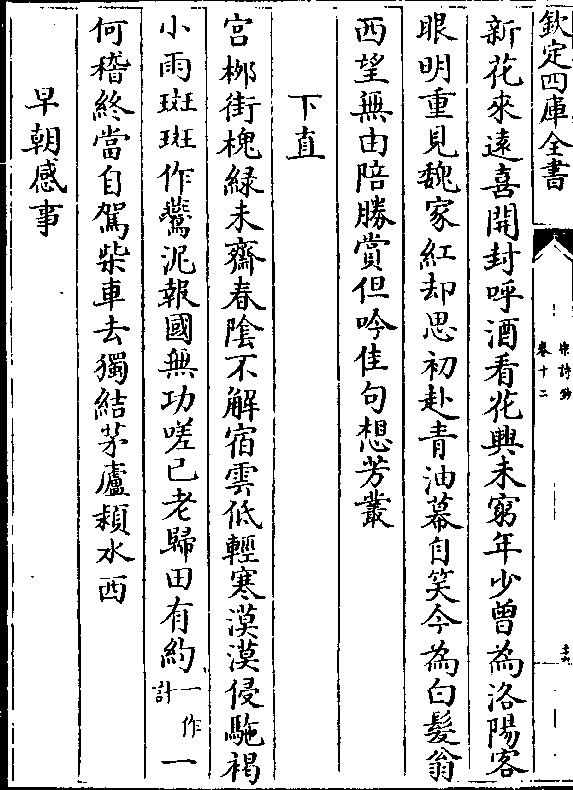 欽定四庫全書
宋詩鈔
卷十二
新花來遠喜開封呼酒看花興未窮年少曾為洛陽客
眼明重見魏家紅却思初赴青油幕自笑今為白髮翁
西望無由陪勝賞但吟佳句想芳叢
下直
宮栁街槐緑未齊春陰不解宿雲低輕寒漠漠侵駞褐
小雨斑斑作鷰泥報國無功嗟已老歸田有約一作計一
何稽終當自駕柴車去獨結茅廬潁水西
早朝感事